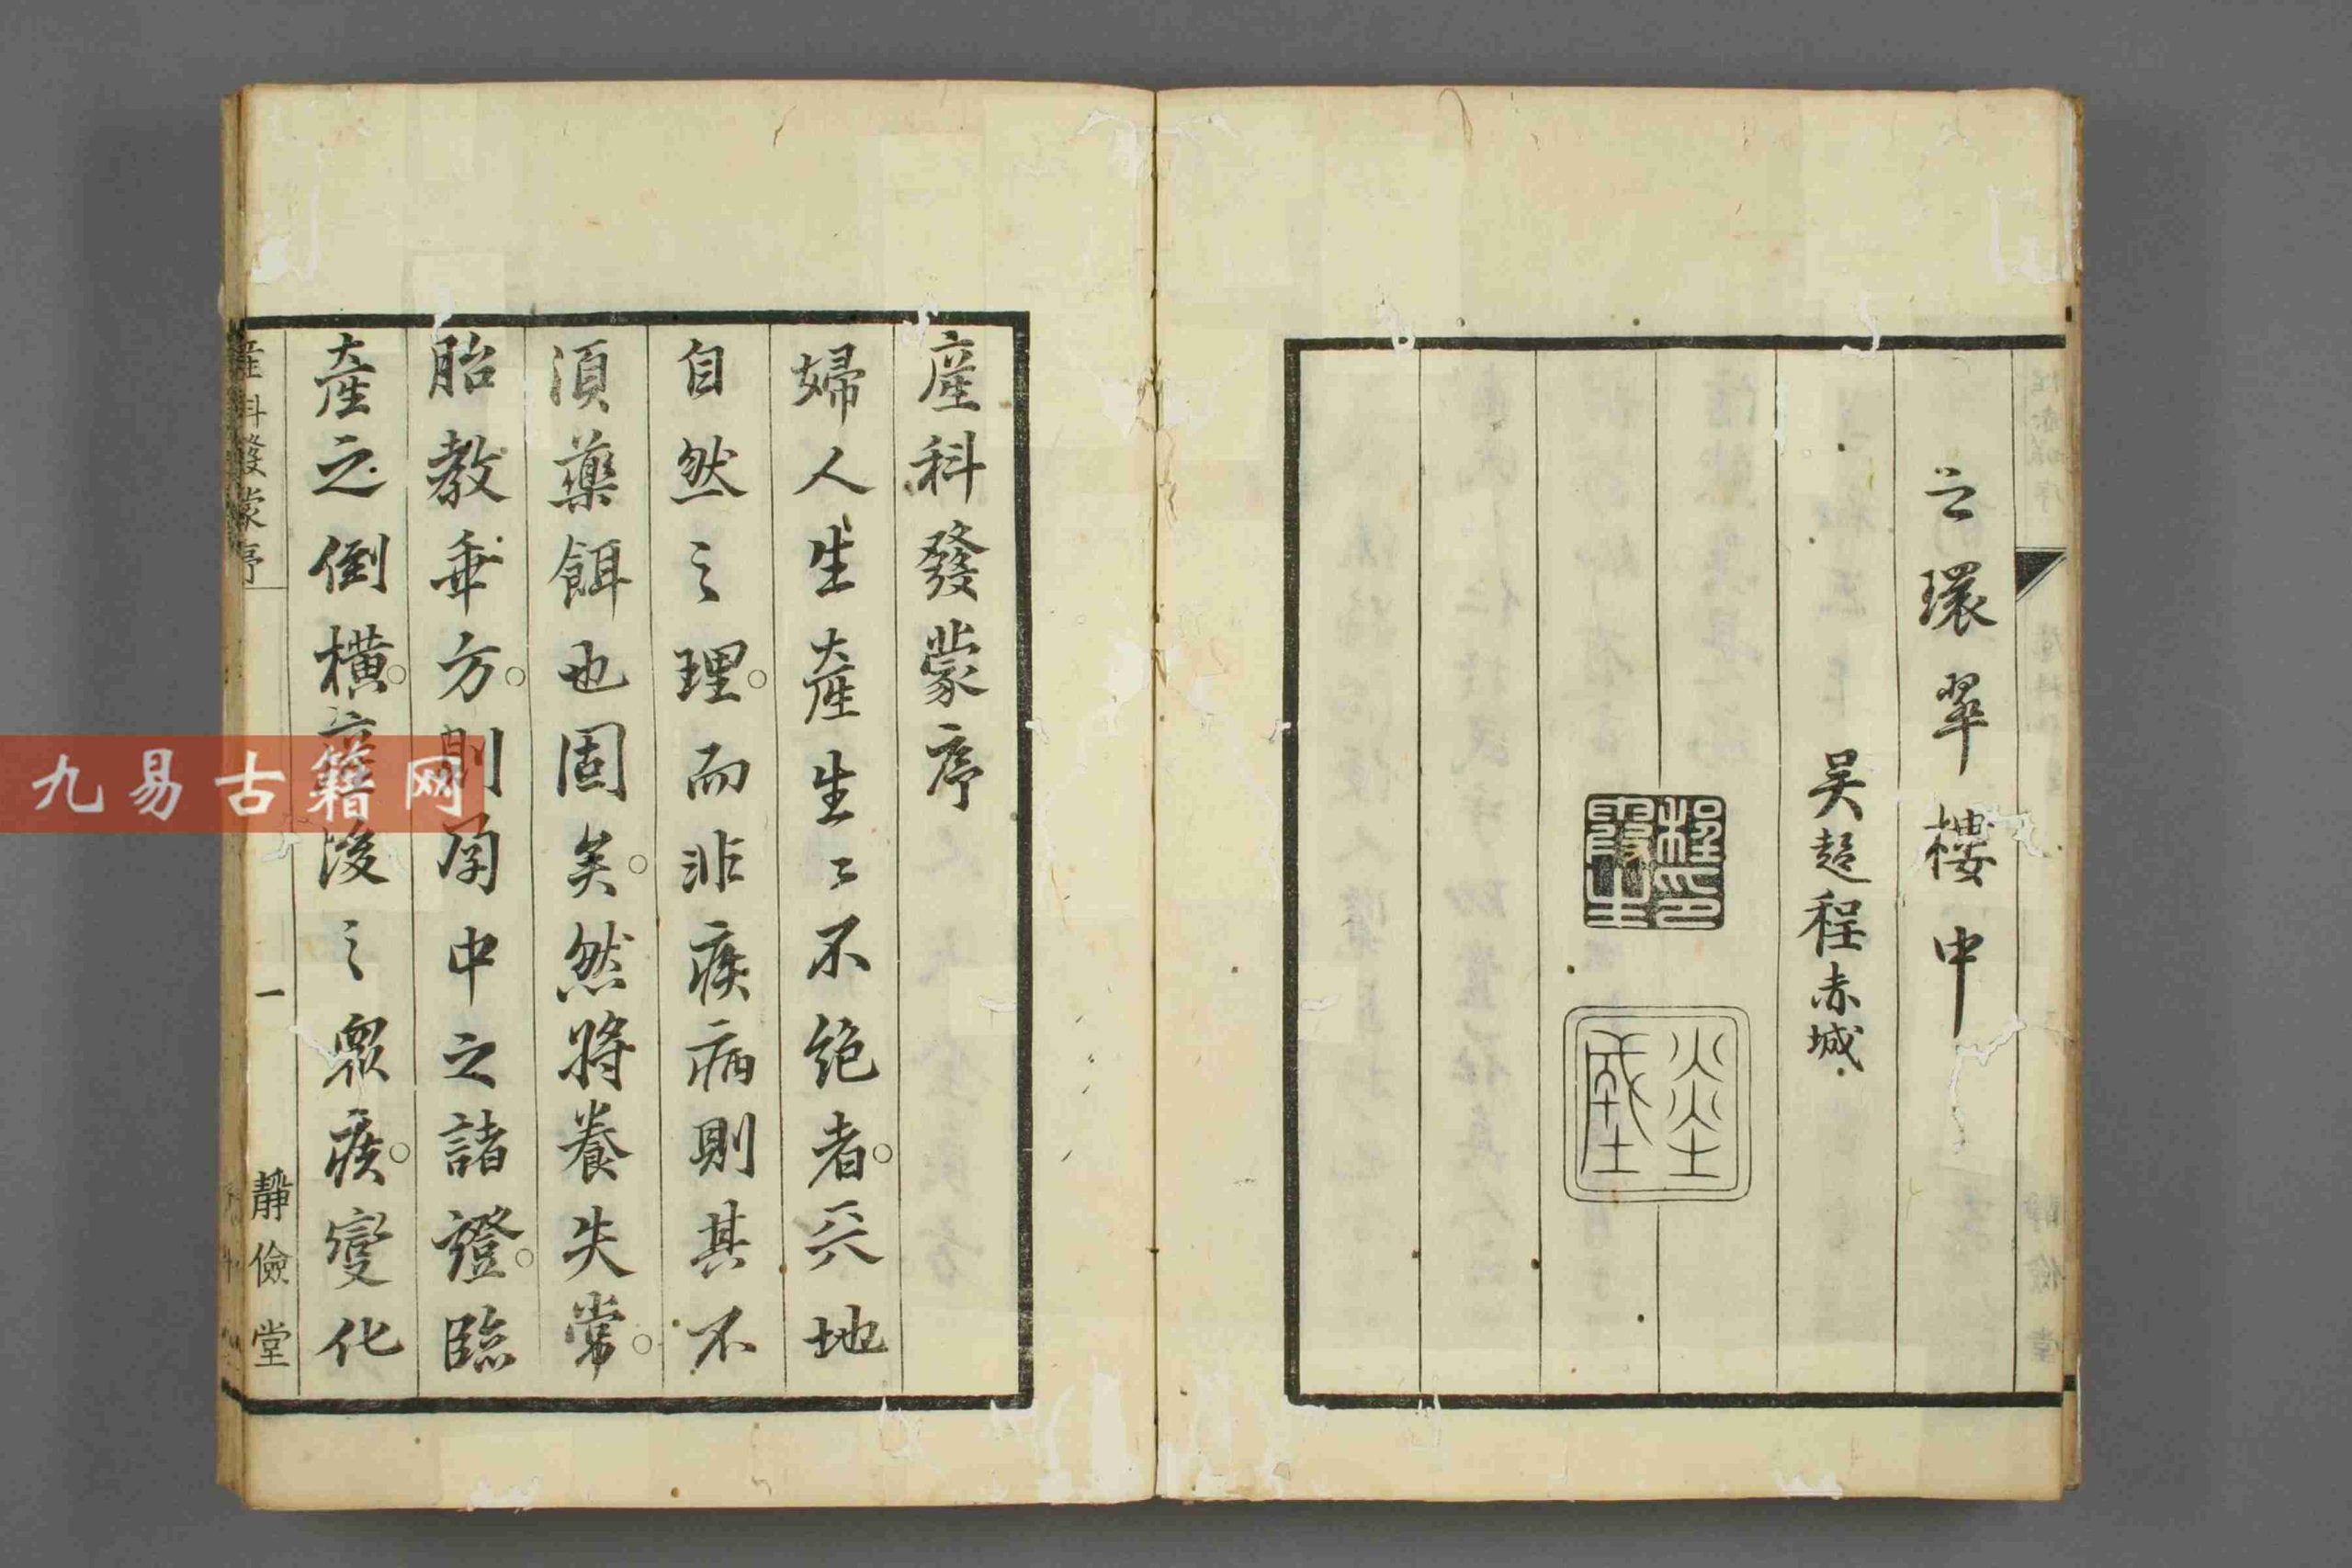 之環翠樓中
吴趍程赤城
程印
霞生
赤城
產科發蒙序
婦人生產生〻不絶者天地
自然之理而非疾病則其不
須藥餌也固矣然將養失常
胎教乖方則孕中之諸證臨
產之倒橫產後之眾疾變化
產科發蒙序
一
靜儉堂
九易古籍网